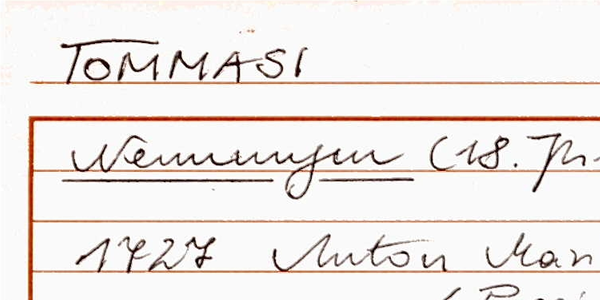 TOMMASI
Nennungen (18. Jh.
1727 Anton Mar